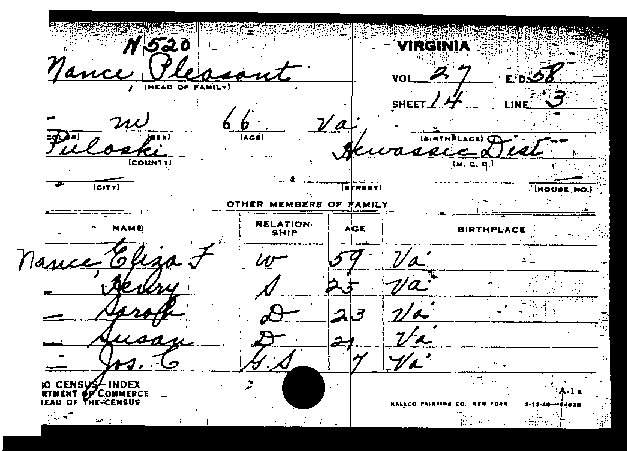 N 520 VIRGINIA
Nance, Pleasant VOL. 27 E.D. 58
(HEAD OF FAMILY) SHEET 14 LINE 3
m 66 Va
(SEX) (AGE) (BIRTHPLACE)
Pulaski Hewassie Dist
(COUNTY) (M. C. D.)
(CITY) (STREET) (HOUSE NO.)
OTHER MEMBERS OF FAMILY
NAME RELATION-SHIP AGE BIRTHPLACE
Nance, Eliza F W 59 Va
— Henry S 25 Va
— Sarah D 23 Va
— Susan D 21 Va
— Jos. C G S 7 Va
CENSUS-INDEX A-1a
RTMENT OF COMMERCE
EAU OF THE CENSUS KALLCO PRINTING CO. NEW YORK